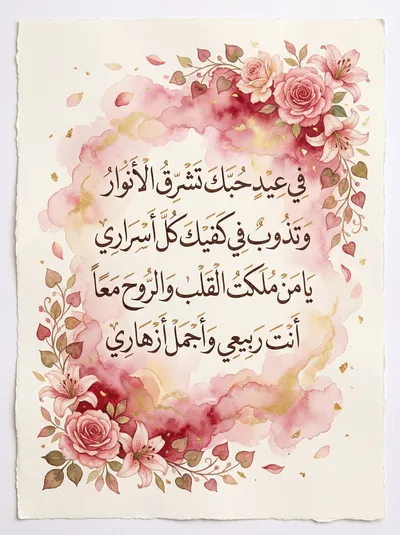 في عيدِ حُبّكَ تَشرِقُ الأَنْوارُ
وَتَذُوبُ فِي كَفّيْكَ كُلَّ أَسْرَارِي
يَا مَنْ مُلَكتُ القَلْبَ وَالرُّوحَ مَعاً
أَنْتَ رَبيعِي وَأَجْمَلْ أَزْهَارِي